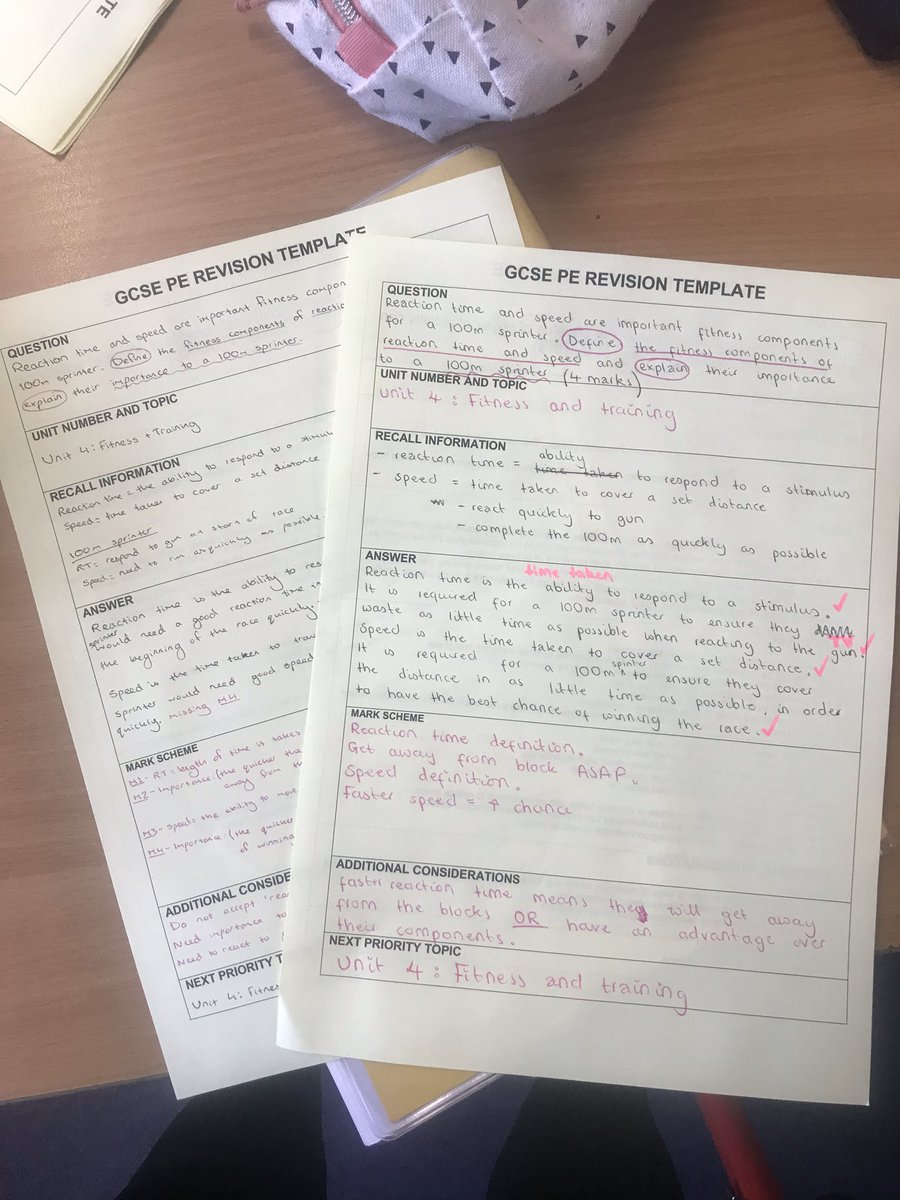 TE
GCSE PE REVISION TEMPLATE
QUESTION
Reaction time and speed are important fitness compon
100m sprinter. Define the fitness components of reactio
explain their importance to a 100m sprinter.
UNIT NUMBER AND TOPIC
Unit 4: Fitness + Training
RECALL INFORMATION
Reaction time = the ability to respond to a stimulu
Speed = time taken to cover a set distance
100m sprinter
RT = respond to gun at start of race
Speed = need to run as quickly as possible
ANSWER
Reaction time is the ability to res
sprinter
would need a good reaction time in
the beginning of the race quickly.
Speed is the time taken to trav
sprinter would need good speed
quickly. missing M4
MARK SCHEME
M1 - RT = length of time it takes
M2 - Importance (the quicker the
away from th
M3 - Speed = the ability to move
M4 - Importance (the quicker
of winning
ADDITIONAL CONSIDE
Do not accept 'rea
Need importance to
Need to react to
NEXT PRIORITY T
Unit 4: Fitnes
GCSE PE REVISION TEMPLATE
QUESTION
Reaction time and speed are important fitness components
for a 100m sprinter. Define the fitness components of
reaction time and speed and explain their importance
to a 100m sprinter (4 marks)
UNIT NUMBER AND TOPIC
Unit 4: Fitness and training
RECALL INFORMATION
- reaction time = time taken ability to respond to a stimulus
- speed = time taken to cover a set distance
- react quickly to gun
- complete the 100m as quickly as possible
ANSWER
time taken
Reaction time is the ability to respond to a stimulus.
It is required for a 100m sprinter to ensure they
waste as little time as possible when reacting to the gun.
Speed is the time taken to cover a set distance.
It is required for a 100m spinter to ensure they cover
the distance in as little time as possible, in order
to have the best chance of winning the race.
MARK SCHEME
Reaction time definition.
Get away from block ASAP.
Speed definition.
Faster speed = ↑ chance
ADDITIONAL CONSIDERATIONS
faster reaction time means they will get away
from the blocks OR have an advantage over
their components.
NEXT PRIORITY TOPIC
Unit 4: Fitness and training